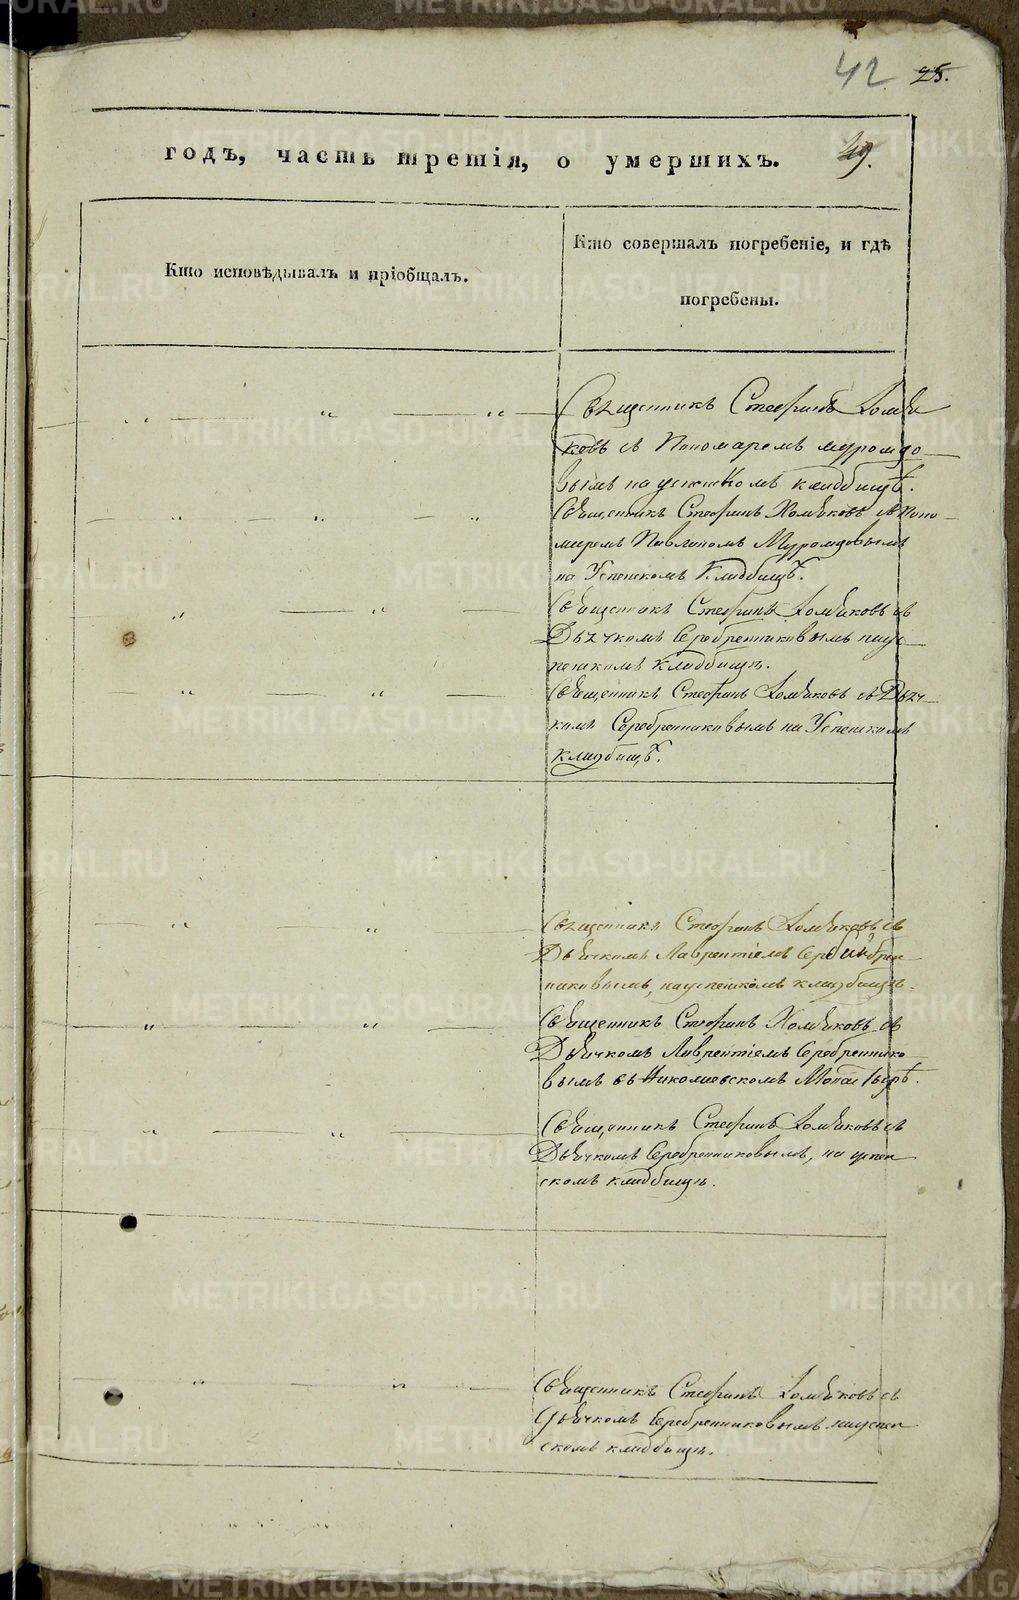 42 25.
годъ, часть третія, о умершихъ. 49.
Кто исповѣдывалъ и пріобщалъ.
Кто совершалъ погребеніе, и гдѣ
погребены.
Священникъ Стефанъ Хомя
ковъ съ Пономаремъ Муромцо
вымъ на успенскомъ кладбищѣ.
Священникъ Стефанъ Хомяковъ съ Поно
маремъ Павломъ Муромцовымъ
на Успенскомъ Кладбищѣ.
Священникъ Стефанъ Хомяковъ съ
Дьячкомъ Серебренниковымъ на ус
пенскомъ кладбищѣ.
Священникъ Стефанъ Хомяковъ съ Дьяч
комъ Серебренниковымъ на Успенскомъ
кладбищѣ.
Священникъ Стефанъ Хомяковъ съ
Дьячкомъ Лаврентіемъ
никовымъ, на успенскомъ кладбищѣ.
Священникъ Стефанъ Хомяковъ съ
Дьячкомъ Лаврентіемъ Серебреннико
вымъ въ Николаевскомъ Монастырѣ.
Священникъ Стефанъ Хомяковъ съ
Дьячкомъ Серебренниковымъ, на успен
скомъ кладбищѣ.
Священникъ Стефанъ Хомяковъ съ
Дьячкомъ Серебренниковымъ на успен
скомъ кладбищѣ.
METRIKI.GASO-URAL.RU